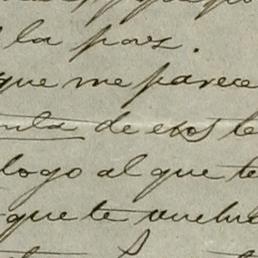 la paz.
que me parece
de esos
logo al que te
que te vuelv